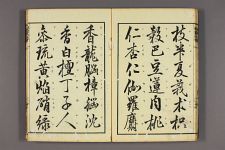 枝半夏莪朮枳
殼巴豆蓮肉桃
仁杏仁伽羅麝
香龍腦樟腦沈
香白檀丁子人
參琉黃焰硝綠